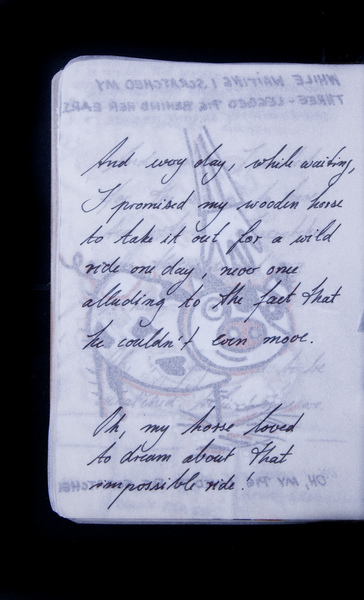 And every day, while waiting,
I promised my wooden horse
to take it out for a wild
ride one day, never once
alluding to the fact that
he couldn't even move.
Oh, my horse loved
to dream about that
impossible ride!
WHILE WAITING I SCRATCHED MY
THREE-LEGGED PIG BEHIND HER EARS
OH, MY PIG